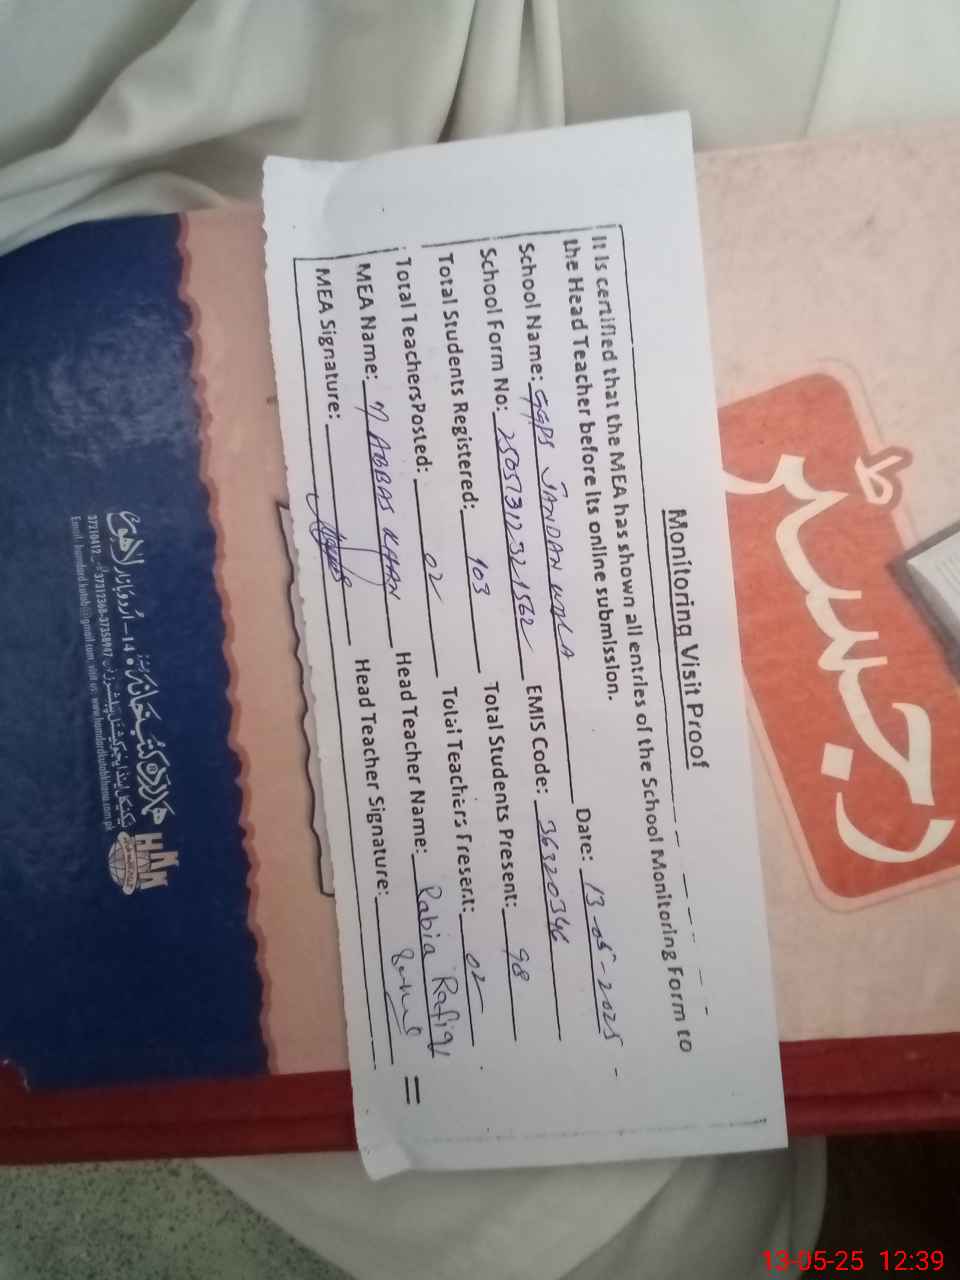 Monitoring Visit Proof
It is certified that the MEA has shown all entries of the School Monitoring Form to
the Head Teacher before its online submission.
School Name: GGPS JANDAN WALA Date: 13-05-2025
School Form No: 25051312321562 EMIS Code: 36320346
Total Students Registered: 103 Total Students Present: 98
Total Teachers Posted: 02 Total Teachers Present: 02
MEA Name: M ABBAS KHAN Head Teacher Name: Rabia Rafiq
MEA Signature: Head Teacher Signature:
رجسٹر
ہمدرد کتب خانہ
14- اُردو بازار لاہور
37210412 37312368-37358997
Email: hamdard.kutab@gmail.com, visit us: www.hamdardkutabkhana.com.pk
HKK
13-05-25 12:39